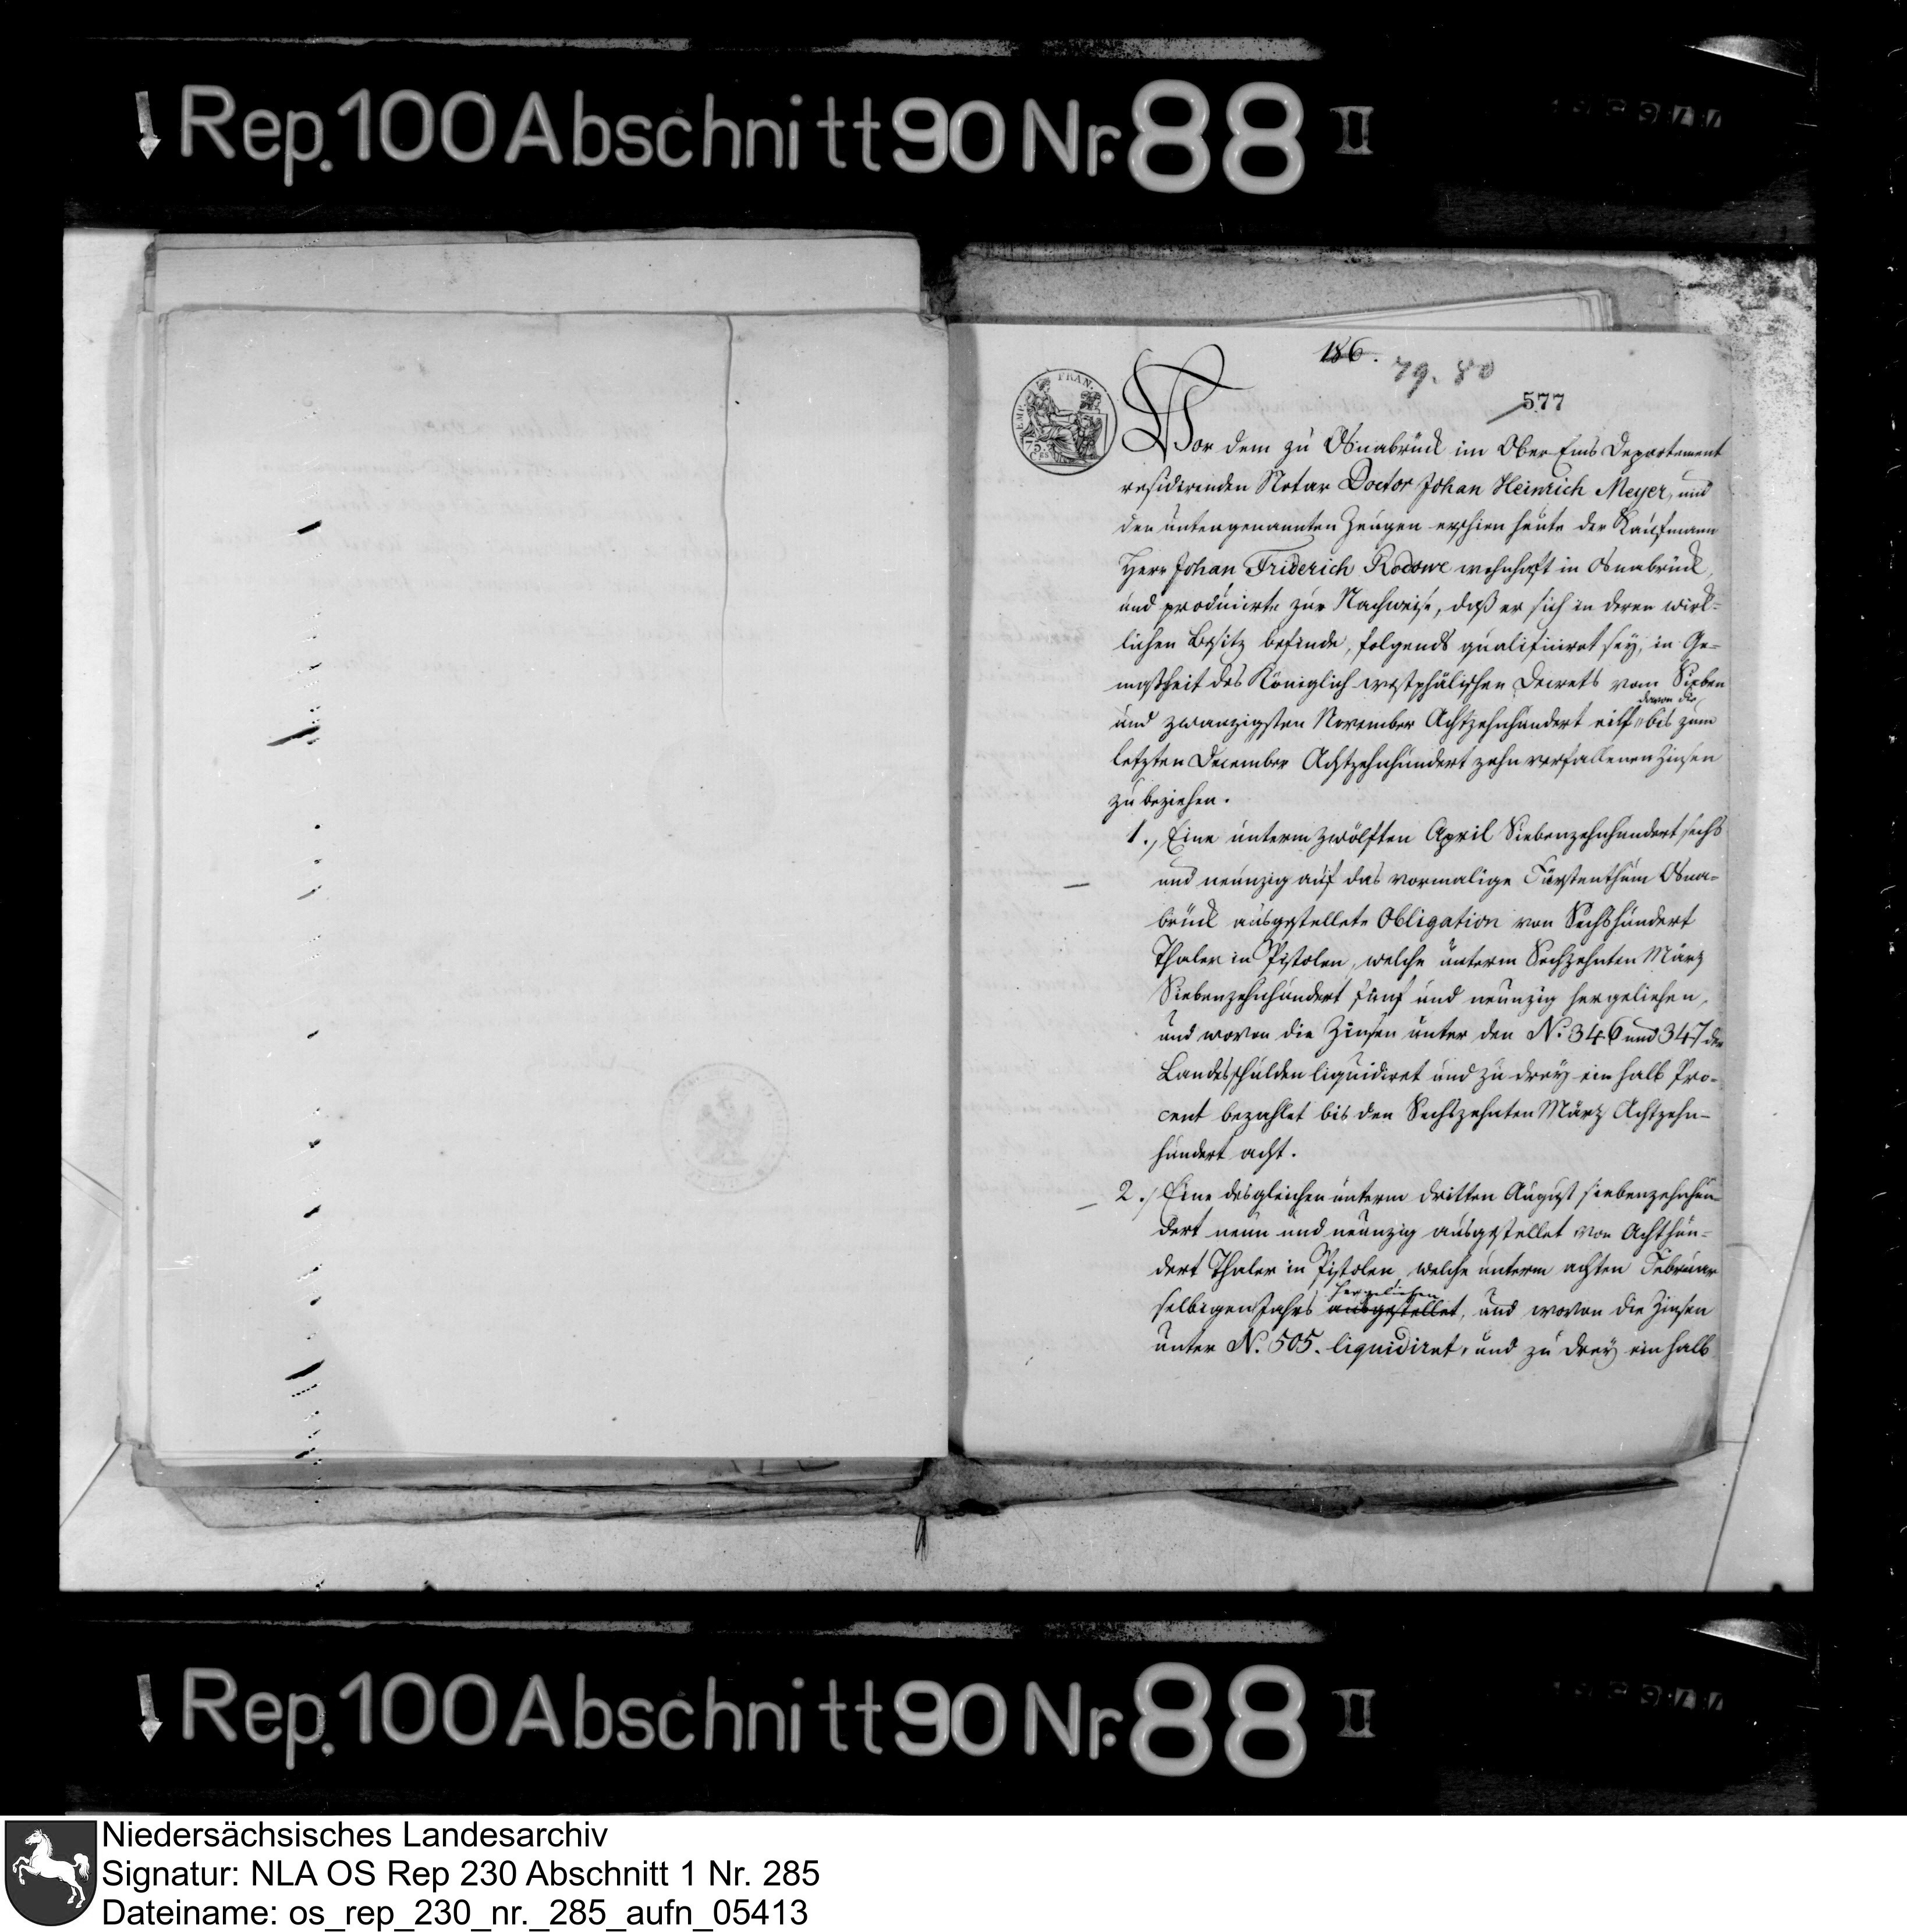 Rep. 100 Abschnitt 90 Nr. 88 II
186.
79. 80
577
EMP. FRAN.
75.
CES
Vor dem zu Osnabrück im Ober Ems Departement
residirenden Notar Doctor Johan Heinrich Meyer, und
den untengenannten Zeugen erschien heute der Kaufmann
Herr Johan Friderich Rodowe wohnhaft in Osnabrück,
und producirte zur Nachweise, daß er sich in deren wirk-
lichen Besitz befinde, folgends qualificirt sey, in Ge-
maßheit des Königlich westphälischen Decrets vom Sieben
davon die
und zwanzigsten November Achtzehnhundert eilf bis zum
letzten December Achtzehnhundert zehn verfallenen Zinsen
zu beziehen.
1., Eine unterm zwölften April Siebenzehnhundert sechs
und neunzig auf das vormalige Fürstenthum Osna-
brück ausgestellete Obligation von Sechshundert
Thaler in Pistolen, welche unterm Sechzehnten März
Siebenzehnhundert fünf und neunzig hergeliehen,
und wovon die Zinsen unter den N. 346 und 347 der
Landesschulden liquidiret und zu drey ein halb Pro-
cent bezahlet bis den Sechszehnten März Achtzehn-
hundert acht.
2., Eine desgleichen unterm dritten August siebenzehnhun-
dert neun und neunzig ausgestellet von Achthun-
dert Thaler in Pistolen, welche unterm achten Februar
hergeliehen
selbigen Jahrs ausgestellet, und wovon die Zinsen
unter N. 505. liquidiret, und zu drey ein halb
Rep. 100 Abschnitt 90 Nr. 88 II
Niedersächsisches Landesarchiv
Signatur: NLA OS Rep 230 Abschnitt 1 Nr. 285
Dateiname: os_rep_230_nr._285_aufn_05413